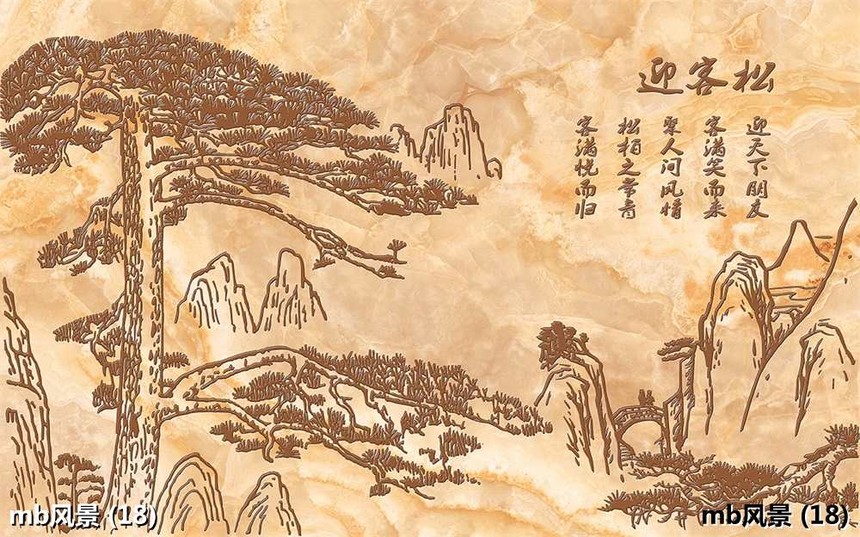 迎客松
迎天下朋友
客满笑而来
聚人间风情
松柏之常青
客满悦而归
mb风景 (18)
mb风景 (18)